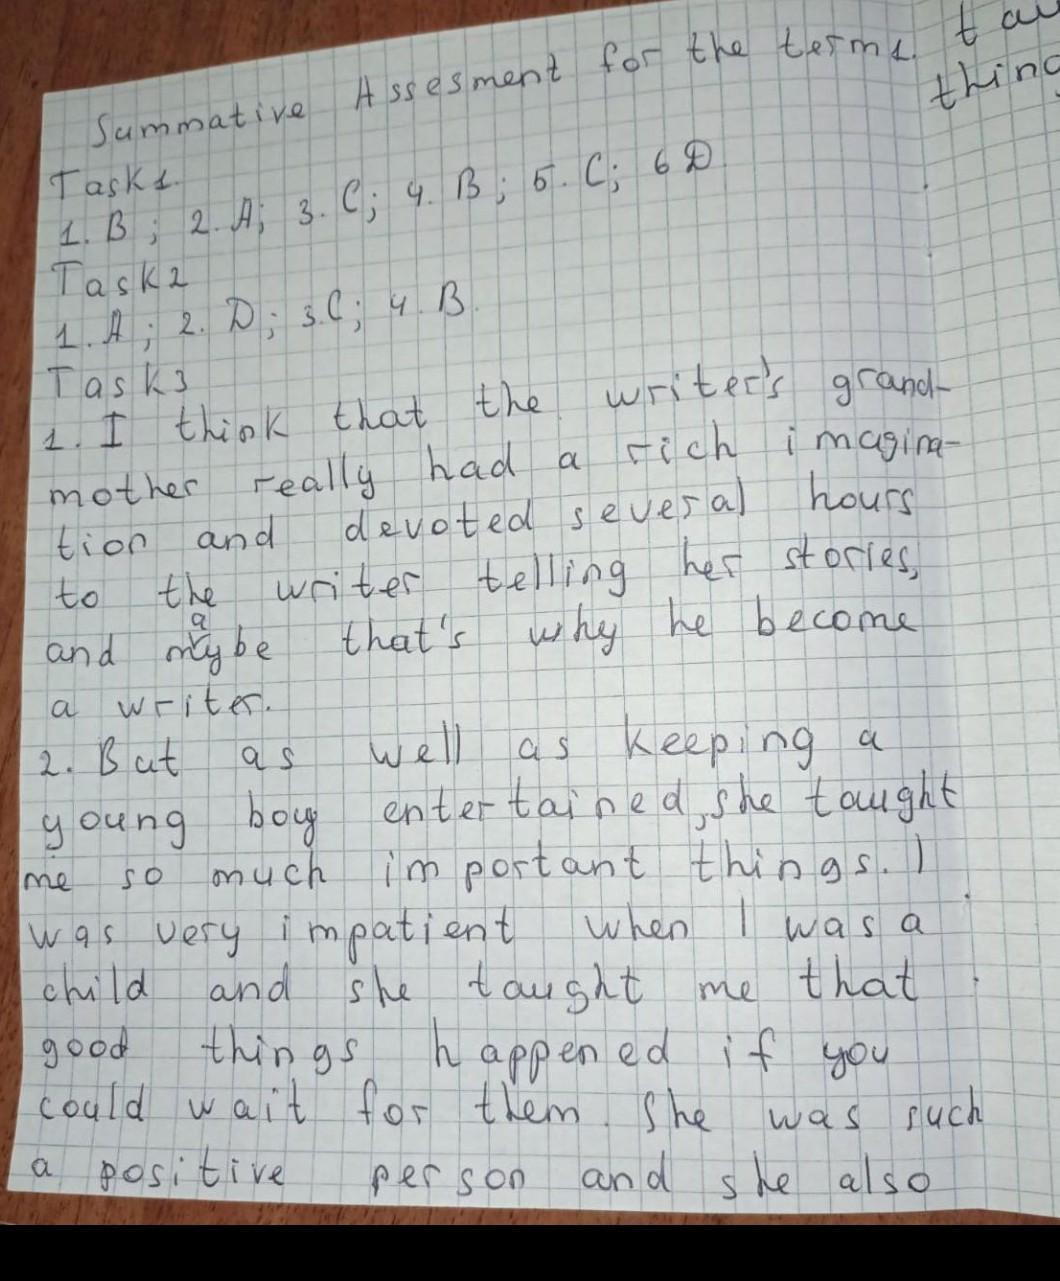 Summative Assesment for the term 1.
Task 1.
1. B ; 2. A; 3. C; 4. B ; 5. C; 6 D
Task 2
1. A ; 2. D; 3.C; 4. B.
Task 3
1. I think that the writer's grand-
mother really had a rich imagina-
tion and devoted several hours
to the writer telling her stories,
and maybe that's why he become
a writer.
2. But as well as keeping a
young boy entertained, she taught
me so much important things. I
was very impatient when I was a
child and she taught me that
good things happened if you
could wait for them. She was such
a positive person and she also
thing